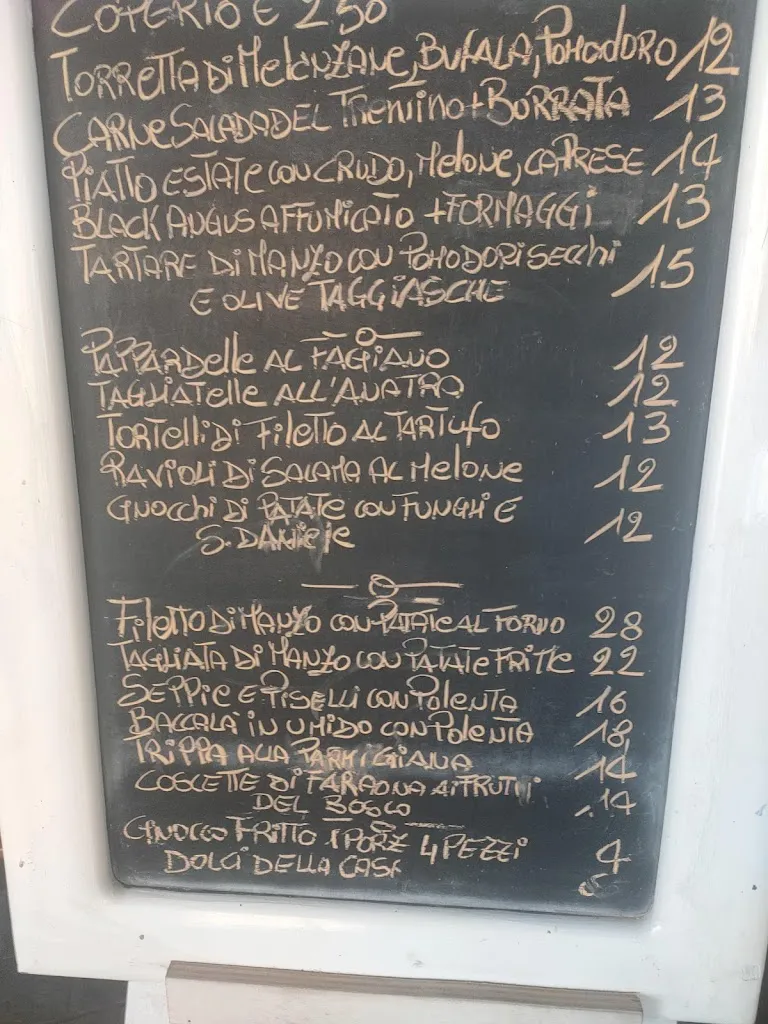 COPERTO € 2.50
TORRETTA DI MELANZANE, BUFALA, POMODORO 12
CARNE SALADA DEL TRENTINO + BURRATA 13
PIATTO ESTATE CON CRUDO, MELONE, CAPRESE 14
BLACK ANGUS AFFUMICATO + FORMAGGI 13
TARTARE DI MANZO CON POMODORI SECCHI 15
E OLIVE TAGGIASCHE
PAPPARDELLE AL FAGIANO 12
TAGLIATELLE ALL'ANATRA 12
TORTELLI DI FILETTO AL TARTUFO 13
RAVIOLI DI SALAMA AL MELONE 12
GNOCCHI DI PATATE CON FUNGHI E
S. DANIELE 12
FILETTO DI MANZO CON PATATE AL FORNO 28
TAGLIATA DI MANZO CON PATATE FRITTE 22
SEPPIE E PISELLI CON POLENTA 16
BACCALÀ IN UMIDO CON POLENTA 18
TRIPPA ALLA PARMIGIANA 14
COSCETTE DI FARAONA AI FRUTTI
DEL BOSCO 14
GNOCCO FRITTO 1 PORZ 4 PEZZI 4
DOLCI DELLA CASA